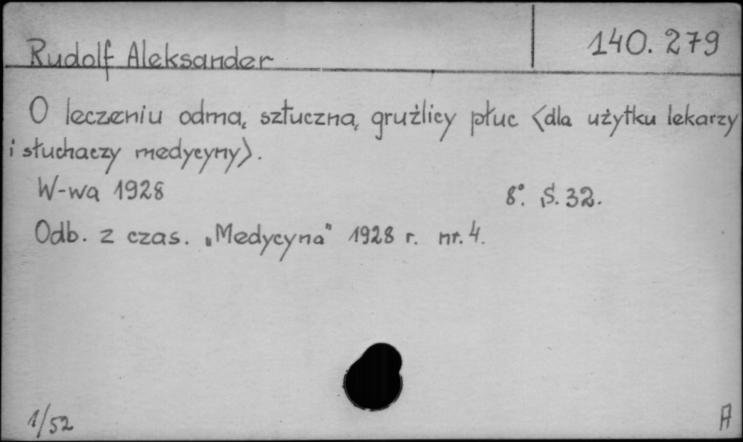 Rudolf Aleksander
140.279
O leczeniu odmą sztuczną gruźlicy płuc <dla użytku lekarzy
i słuchaczy medycyny>.
W-wa 1928 8°. S. 32.
Odb. z czas. „Medycyna" 1928 r. nr. 4.
1/52
A